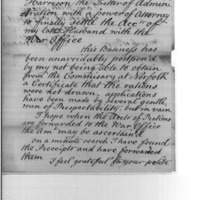 Harrison the Letter of Admini
stration with a power of Attorney
to finally settle the Acc.t of
my late Husband with the
War Office
this Business has
been unavoidably postponed
by my not being able to obtain
from the Commissary at Norfolk
a Certificate that the rations
were not drawn, applications
have been made by several gentle
men of Respectability but in vain
I hope when the Acc.ts of Rations
are forwarded to the War Office
the Am.t may be ascertained
on a minute search I have found
the Receipt and have forwarded
them
I feel grateful for your polite